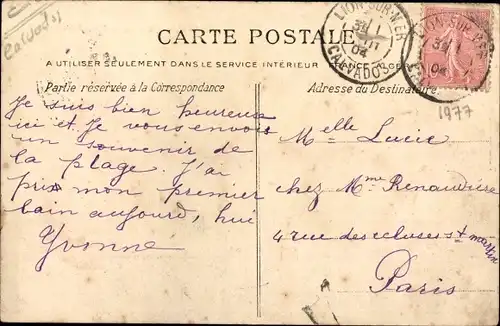 Calvados
CARTE POSTALE
A UTILISER SEULEMENT DANS LE SERVICE INTÉRIEUR
Partie réservée à la Correspondance
Je suis bien heureuse
ici et Je vous envois
un souvenir de
la plage. J'ai
pris mon premier
bain aujourd, hui
Yvonne
LION-SUR-MER
04
CALVADOS
LION-SUR-MER
04
1977
Adresse du Destinataire
Melle Lucie
chez Mme Renaudière
4 rue des écluses St martin
Paris